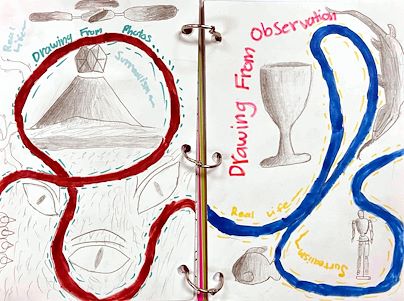 Real
Life
Drawing From Photos
Surrealism
Drawing From Observation
Real Life
Surrealism